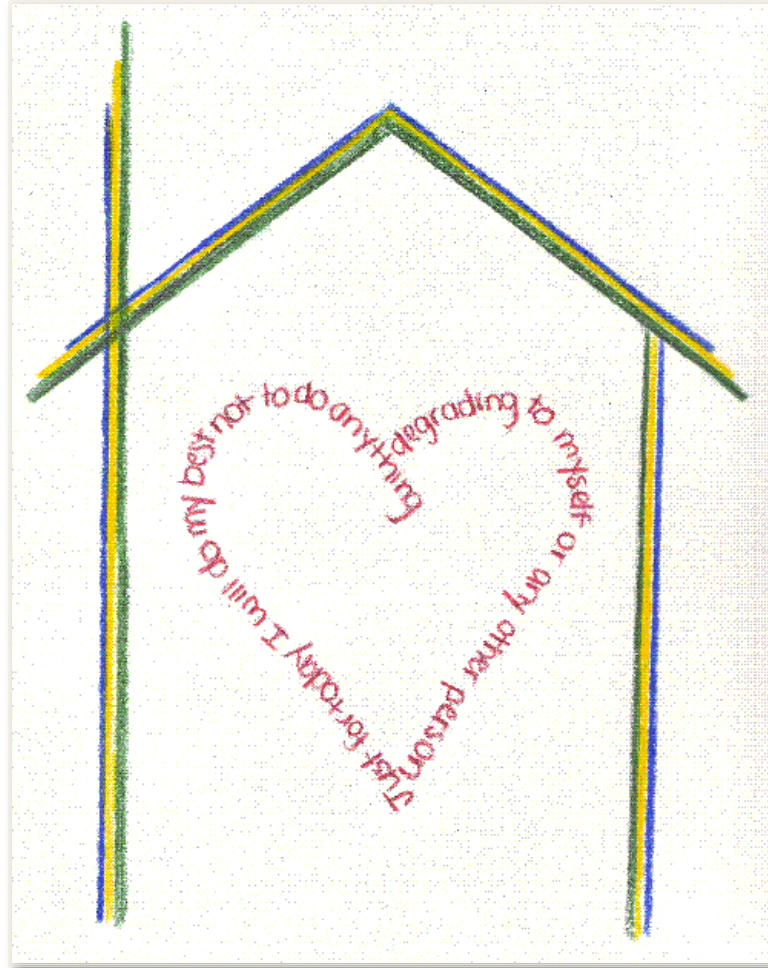 Just for today I will do my best not to do anything degrading to myself or any other person